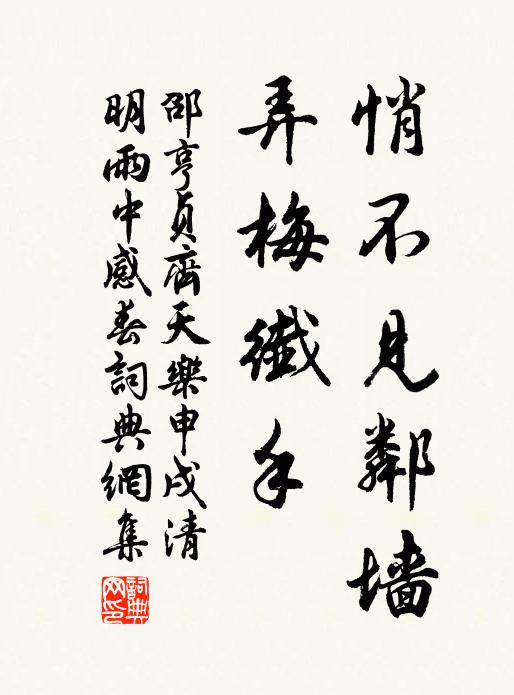 悄不見鄰墙
弄梅纖手
邵亨貞齊天樂申戌清
明雨中感春詞典網集
詞典
网印